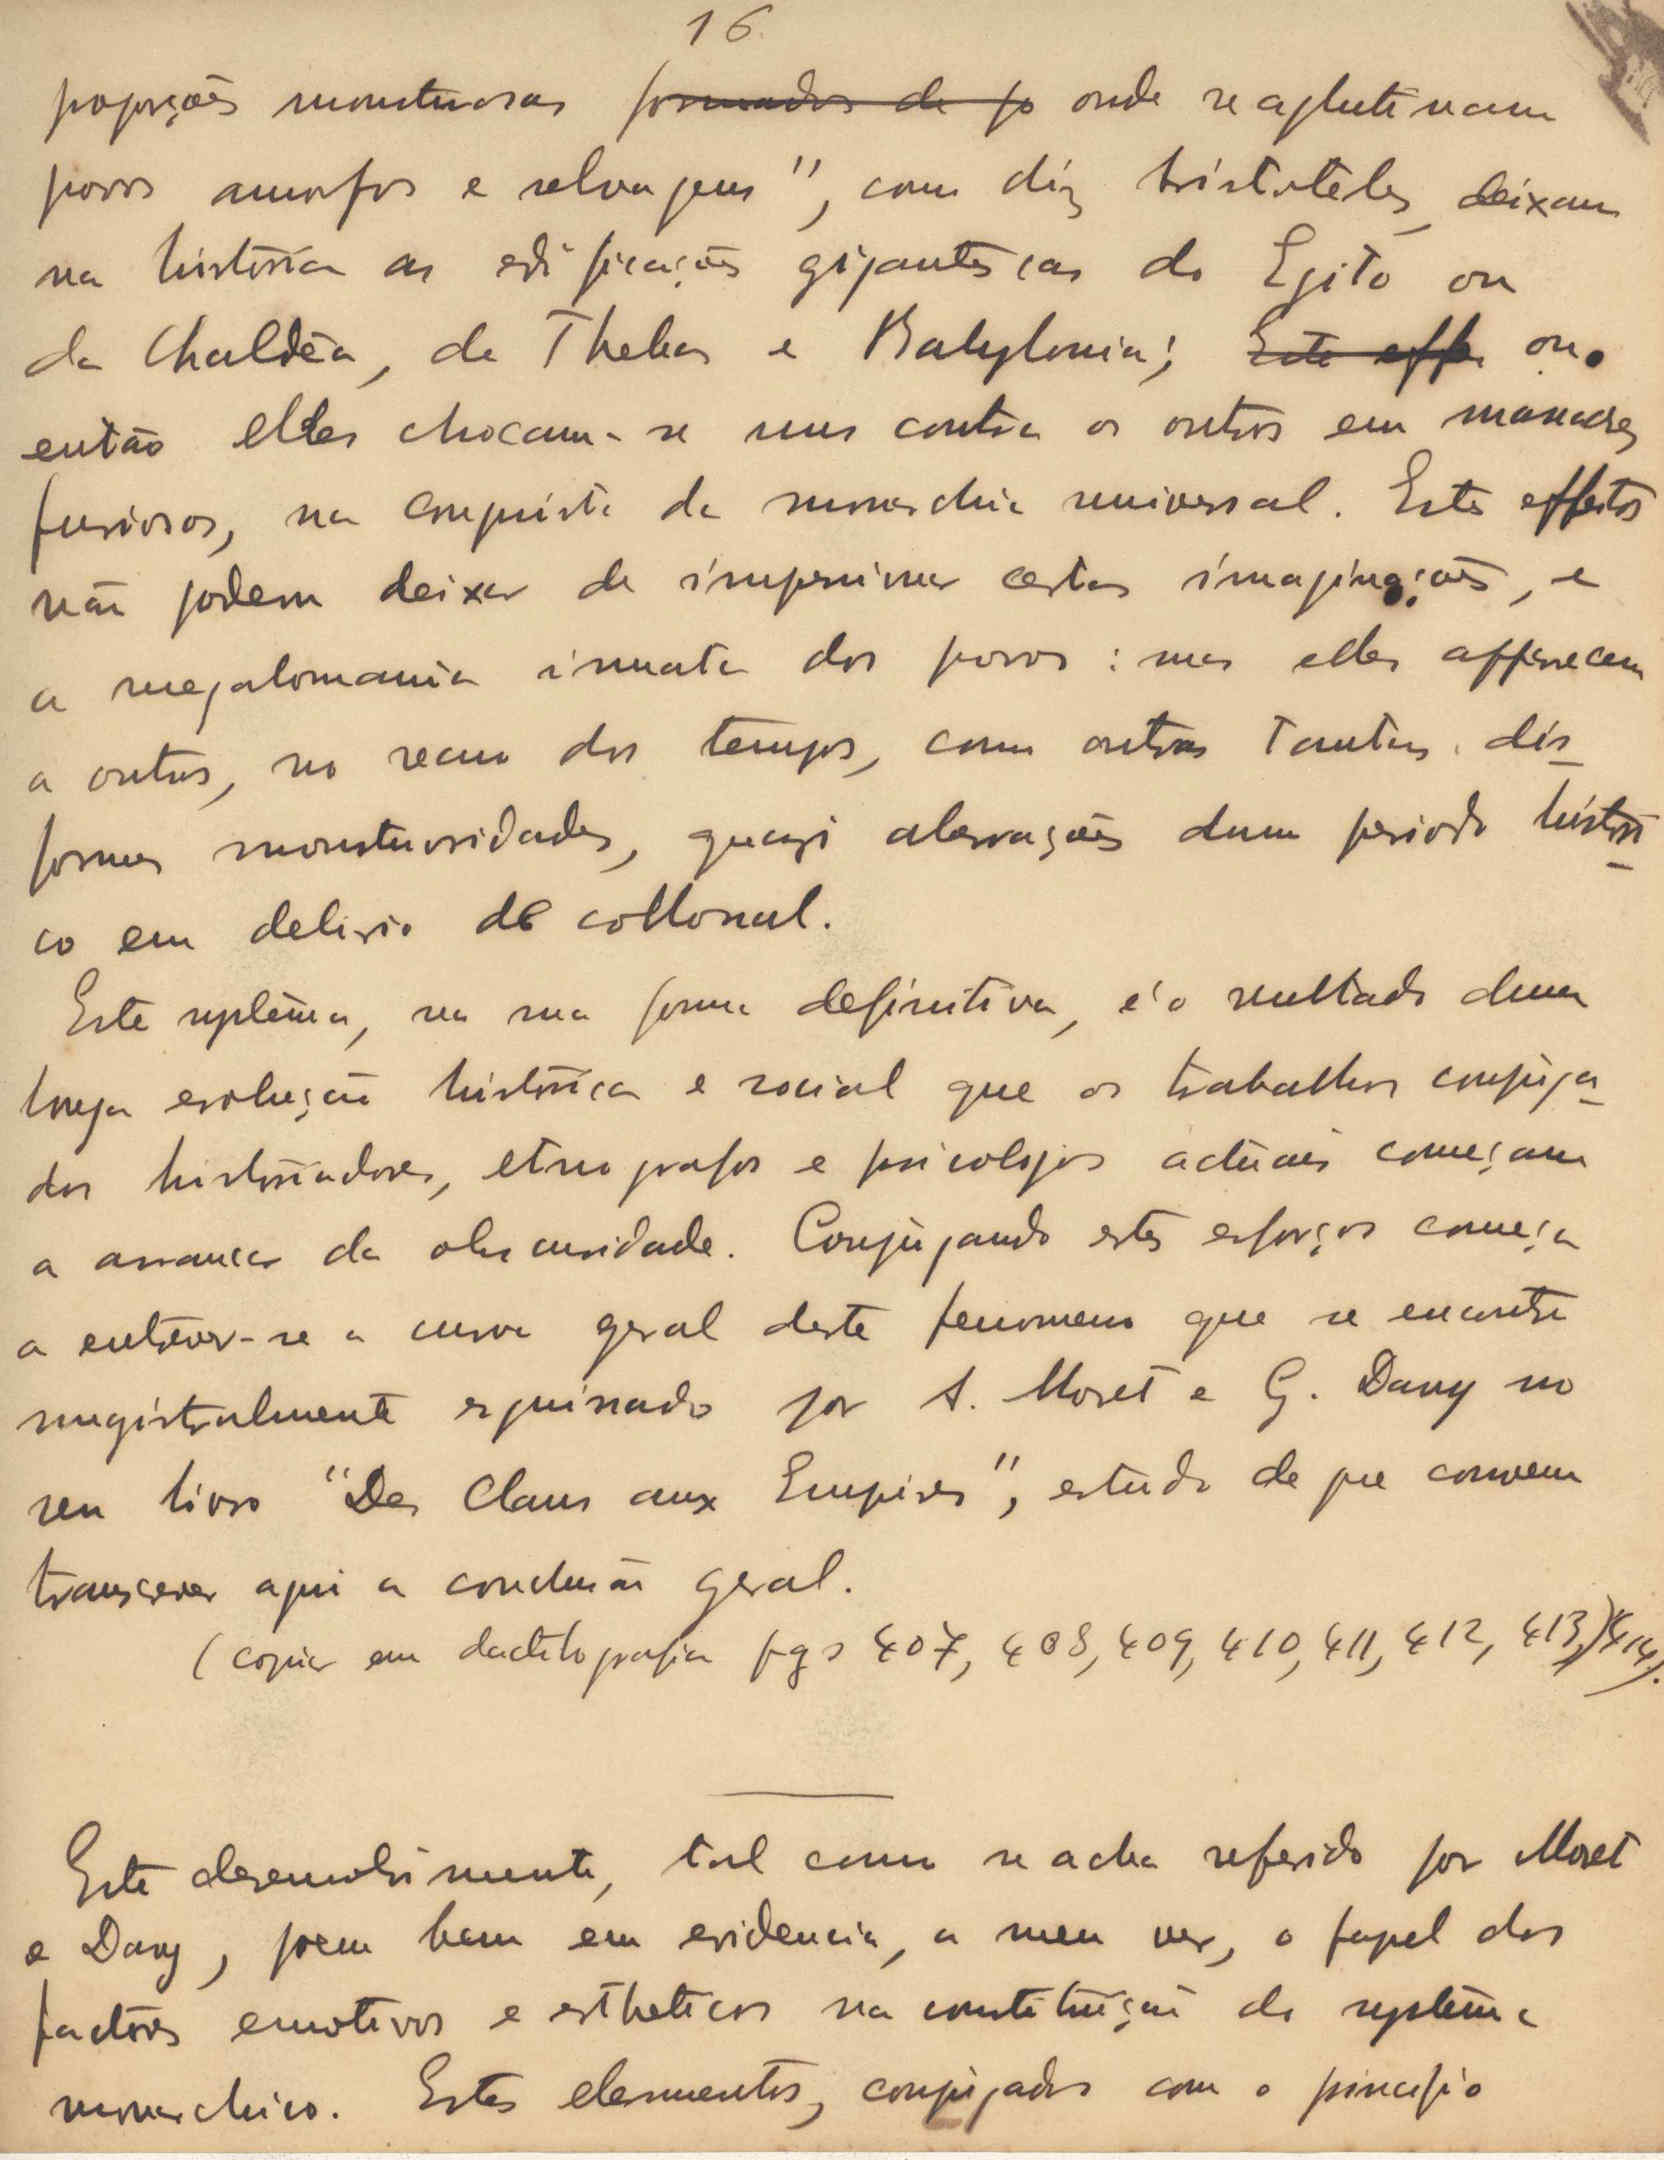 16.
proporções monstruosas formados de po onde se aglutinam
povos amorfos e selvagens", como diz Aristoteles, deixam
na história as edificações gigantescas do Egito ou
da Chaldêa, de Thebas e Babylonia; Este effe ou
então elles chocam-se uns contra os outros em
furiosos, na conquista da monarchia universal. Estes effeitos
não podem deixar de imprimir certas imaginações, e
a megalomania innata dos povos: mas elles apparecem
a outros, no recuo dos tempos, como outras tantas dis-
formes monstruosidades, quasi aberrações dum periodo históri-
co em delirio de collossal.
Este systêma, na sua forma definitiva, é o resultado duma
longa evolução histórica e social que os trabalhos conjuga-
dos historiadores, etnografos e psicologos actuais começam
a arrancar da obscuridade. Conjugando estes esforços começa
a entever-se a curva geral deste fenomeno que se encontra
magistralmente esquissado por A. Moret e G. Davy no
seu livro "Des Clans aux Empires", estudo de que convem
transcrever aqui a conclusão geral.
(copiar em dactilografia pgs 407, 408, 409, 410, 411, 412, 413, 414).
Este desenvolvimento, tal como se acha referido por Moret
e Davy, poem bem em evidencia, a meu ver, o papel dos
factôres emotivos e estheticos na constituição do systêma
monarchico. Estes elementos, conjugados com o principio